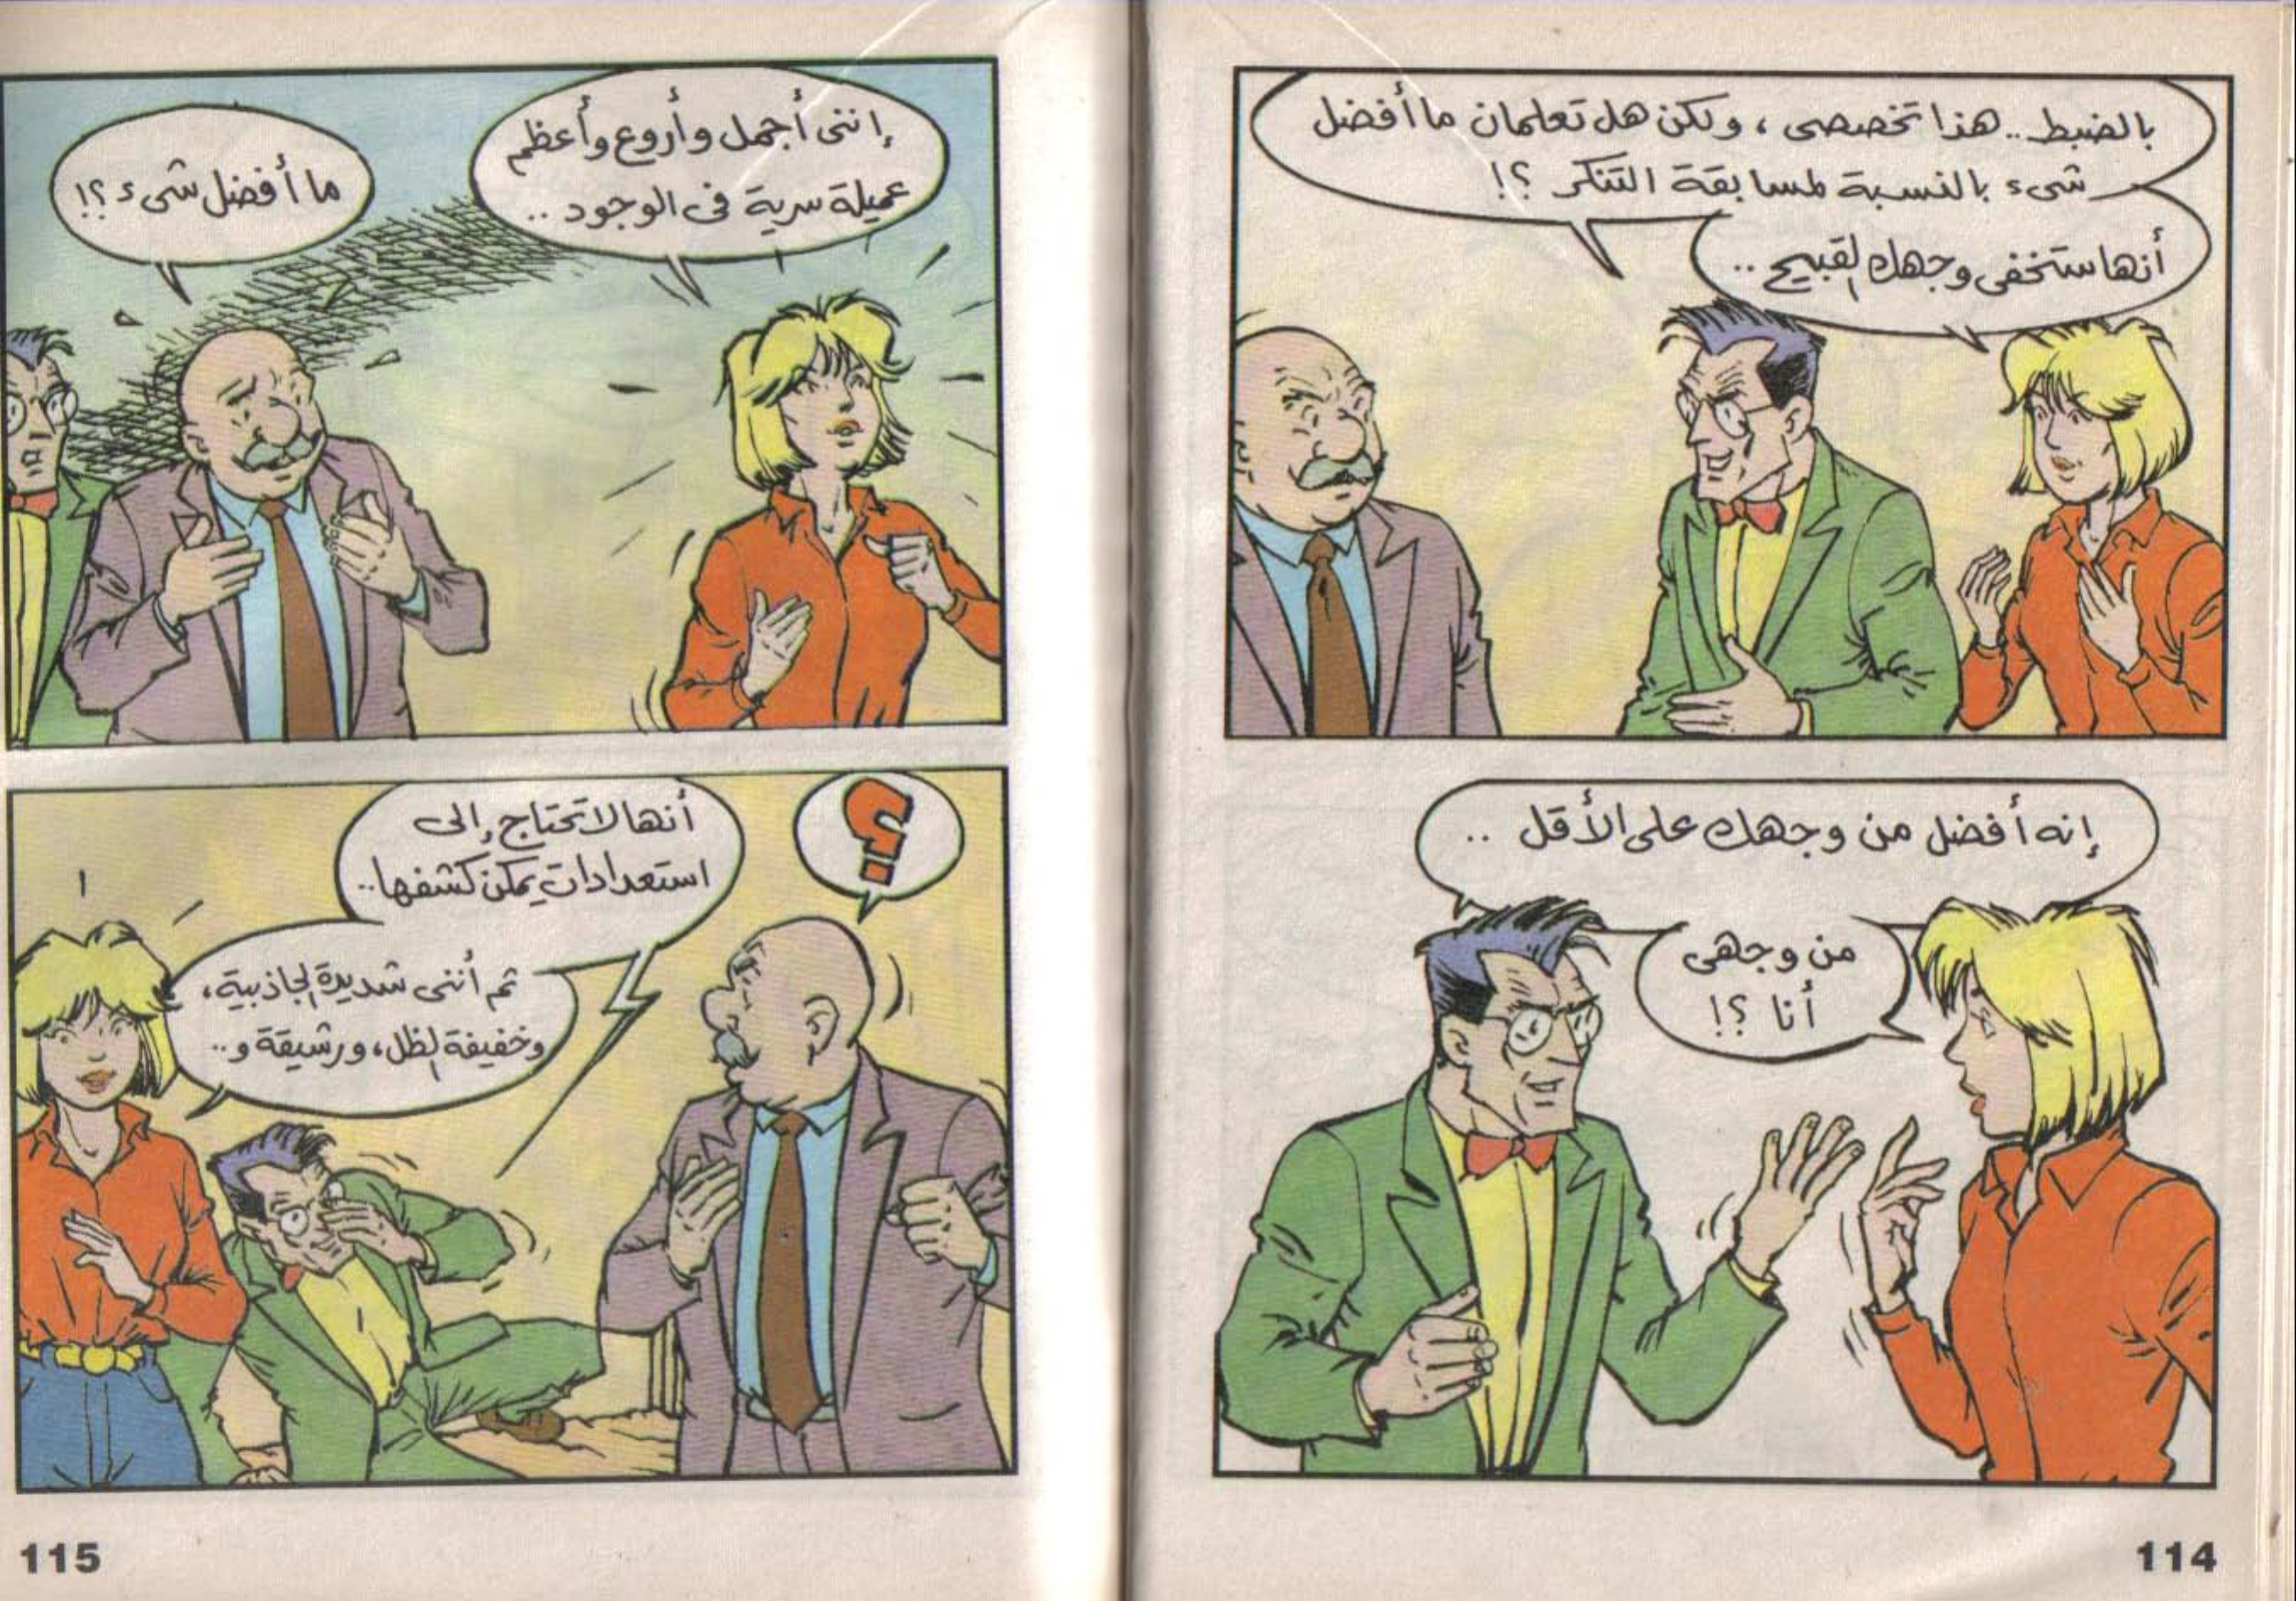 بالضبط .. هذا تخصصى ، ولكن هل تعلمان ما أفضل
شىء بالنسبة لمسابقة التنكر ؟!
أنها ستخفى وجهك القبيح ..
إنه أفضل من وجهك على الأقل ..
من وجهى
أنا ؟!
114
إننى أجمل وأروع وأعظم
عميلة سرية فى الوجود ..
ما أفضل شىء ؟!
؟
أنها لا تحتاج إلى
استعدادات يمكن كشفها ..
ثم أننى شديدة الجاذبية ،
وخفيفة الظل ، ورشيقة و ..
115